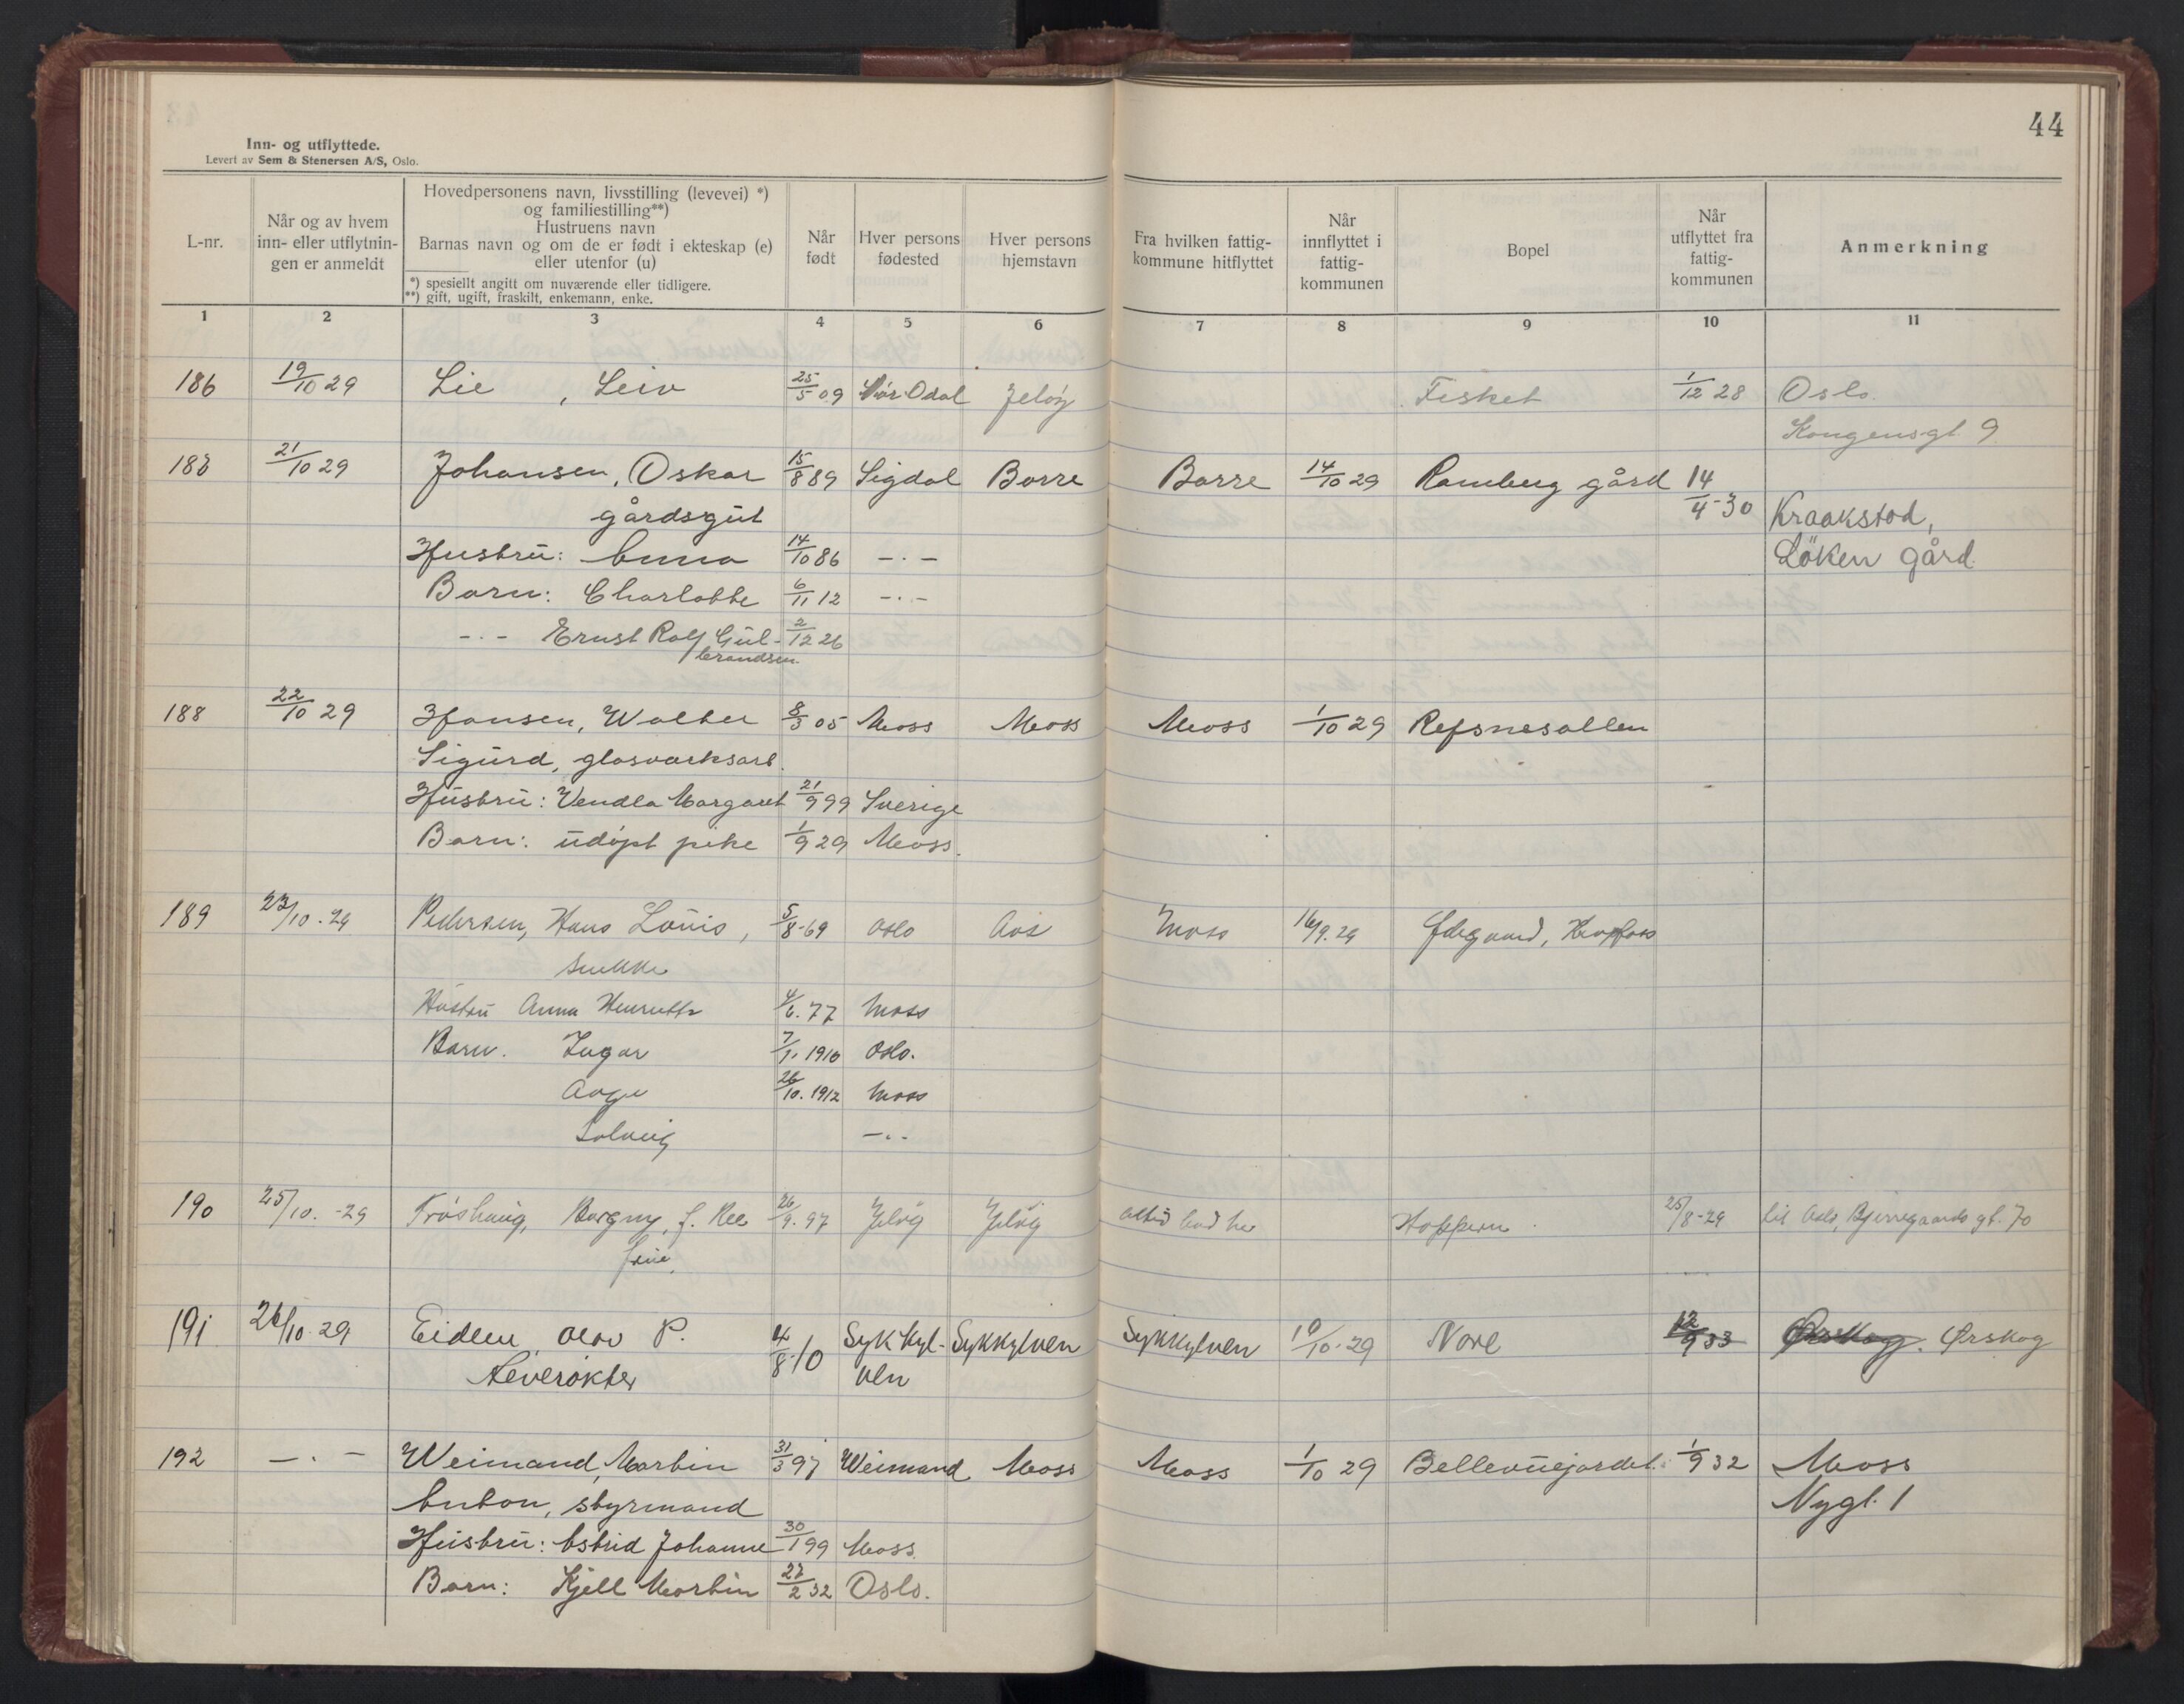 44
Inn- og utflyttede.
Levert av Sem & Stenersen A/S, Oslo.
L-nr.
Når og av hvem
inn- eller utflytnin-
gen er anmeldt
Hovedpersonens navn, livsstilling (levevei) *)
og familiestilling**)
Hustruens navn
Barnas navn og om de er født i ekteskap (e)
eller utenfor (u)
*) spesielt angitt om nuværende eller tidligere.
**) gift, ugift, fraskilt, enkemann, enke.
Når
født
Hver persons
fødested
Hver persons
hjemstavn
Fra hvilken fattig-
kommune hitflyttet
Når
innflyttet i
fattig-
kommunen
Bopel
Når
utflyttet fra
fattig-
kommunen
Anmerkning
1 2 3 4 5 6 7 8 9 10 11
186 19/10 29 Lie, Leiv 25/5 09 Odal Jeløy Fisket 1/12 28 Oslo
Kongensgt. 9.
187 21/10 29 Johansen, Oskar 15/8 89 Sigdal Borre Borre 14/10 29 Ramberg gård 14/4-30
gårdsgut Kraakstod,
Hustru: Anna 14/10 86 -.- Löken gård
Barn: Charlotte 6/11 12 -.-
-.- Ernst Rolf Gul- 2/12 26
brandsen
188 22/10 29 Hansen, Walter 8/3 05 Moss Moss Moss 1/10 29 Refsnesalleen
Sigurd, glasverksarb.
Hustru: Vendla Margaret 21/9 99 Sverige
Barn: udöpt pike 1/9 29 Moss.
189 23/10.29 Pedersen, Hans Louis, 5/8-69 Oslo Ås Moss 16/9.29
Hustru Anna Henriette 4/6.77 Moss
Barn. Ingar 7/1.1910 Oslo.
Aage 26/10.1912 Moss
Solveig -.-
190 25/10.-29 Tröshaug, Borgny, f. Ree 26/9.97 Jeløy Jeløy altid bod her Hoppern. 25/8-29 til Oslo, Bjerregaards gt. 70
frue.
191 26/10.29 Eidem, Olav P. 4/8-10 Sykkyl- Sykkylven Sykkylven 10/10.29 Nore 12/9 33 Ørskog. Ørskog
Reverøkter ven
192 -.- Weimand, Martin 31/3 97 Weimand Moss Moss 1/10 29 Bellevuejordet. 1/9 32 Moss
Anton, styrmand Nygt. 1
Hustru: Astrid Johanne 30/1 99 Moss
Barn: Kjell Martin 27/2 32 Oslo.